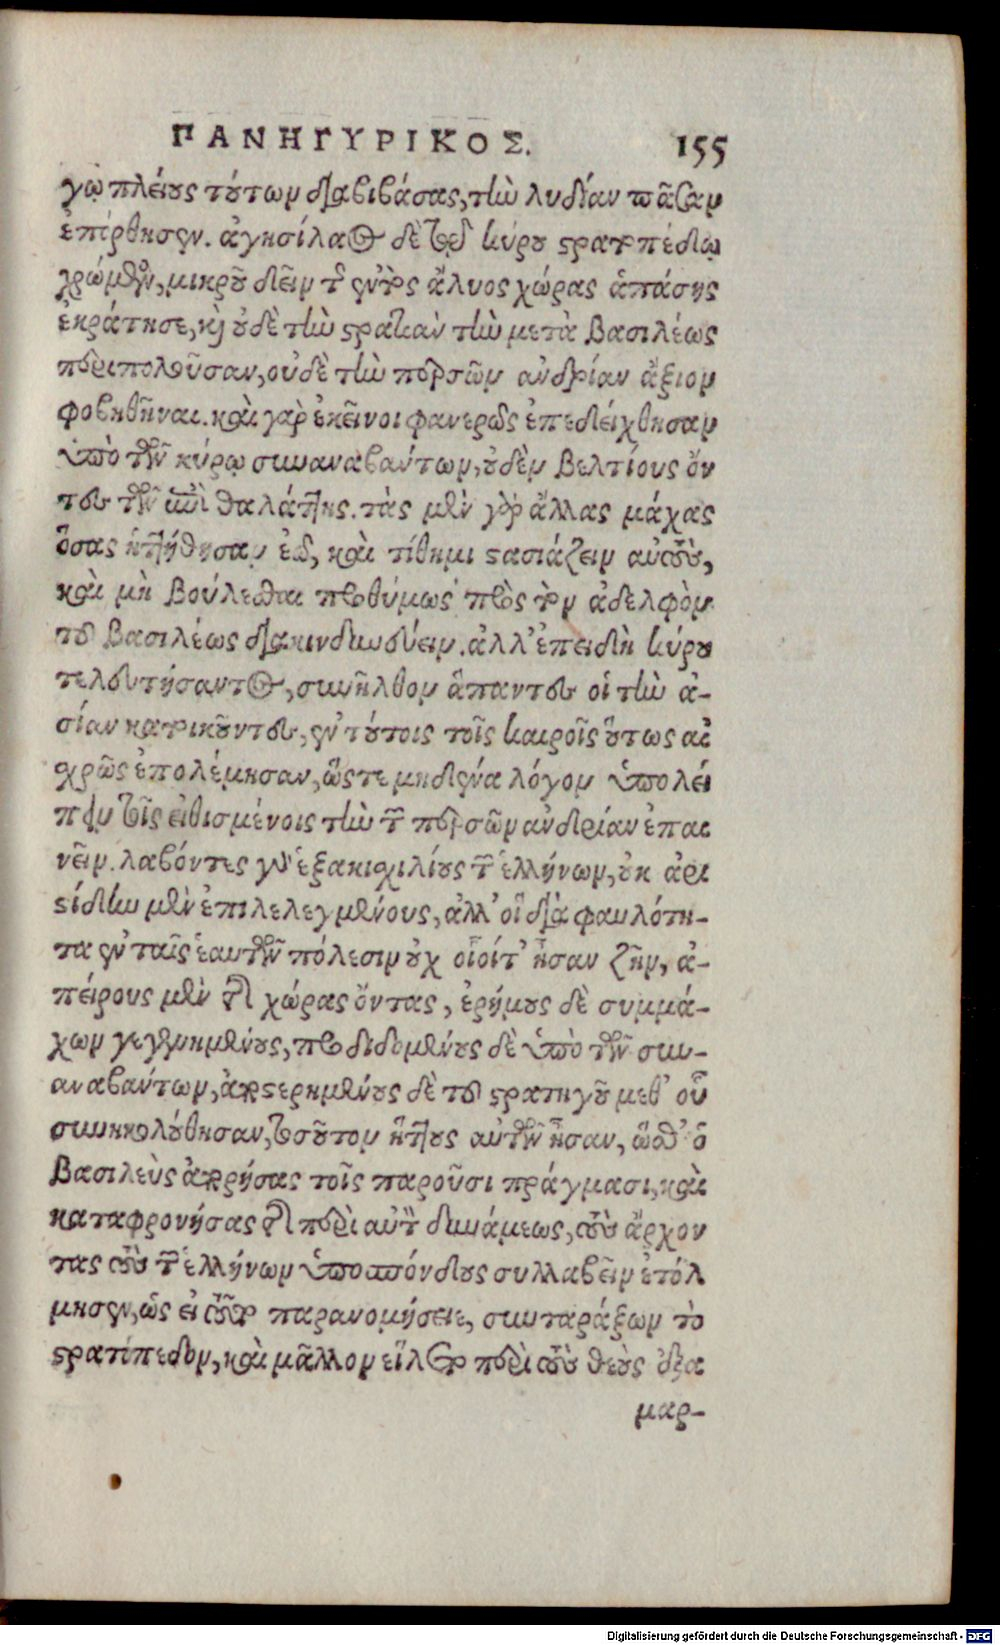 ΠΑΝΗΓΥΡΙΚΟΣ. 155
γῳ πλείους τούτων διαβιβάσας, τὴν λυδίαν πᾶσαν
ἐπόρθησεν. ἀγησίλαος δὲ τῷ κύρου στρατοπέδῳ
χρώμενος, μικροῦ δεῖν τῆς ἐντὸς ἅλυος χώρας ἁπάσης
ἐκράτησε, καὶ οὐδὲ τὴν στρατιὰν τὴν μετὰ βασιλέως
περιπολοῦσαν, οὐδὲ τὴν περσῶν ἀνδρίαν ἄξιον
φοβηθῆναι. καὶ γὰρ ἐκεῖνοι φανερῶς ἐπεδείχθησαν
ὑπὸ τῶν κύρῳ συναναβάντων, οὐδὲν βελτίους ὄν
τες τῶν ἐπὶ θαλάττης. τὰς μὲν γὰρ ἄλλας μάχας
ὅσας ἡττήθησαν ἐῶ, καὶ τίθημι στασιάζειν αὐτοὺς,
καὶ μὴ βούλεσθαι προθύμως πρὸς τὸν ἀδελφὸν
τοῦ βασιλέως διακινδυνεύειν. ἀλλ' ἐπειδὴ κύρου
τελευτήσαντος, συνῆλθον ἅπαντες οἱ τὴν ἀ-
σίαν κατοικοῦντες, ἐν τούτοις τοῖς καιροῖς οὕτως αἰ
χρῶς ἐπολέμησαν, ὥστε μηδένα λόγον ὑπολεί
πειν τοῖς εἰθισμένοις τὴν τῶν περσῶν ἀνδρίαν ἐπαι
νεῖν. λαβόντες γὰρ ἑξακιχιλίους τῶν ἑλλήνων, οὐκ ἀρι
στίνδην μὲν ἐπιλελεγμένους, ἀλλ' οἳ διὰ φαυλότη-
τα ἐν ταῖς ἑαυτῶν πόλεσιν οὐχ οἷοίτ' ἦσαν ζῆν, ἀ-
πείρους μὲν τῆς χώρας ὄντας, ἐρήμους δὲ συμμά-
χων γεγενημένους, προδεδομένους δὲ ὑπὸ τῶν συν-
αναβάντων, ἀπεστερημένους δὲ τοῦ στρατηγοῦ μεθ' οὗ
συνηκολούθησαν, τοσοῦτον ἥττους αὐτῶν ἦσαν, ὥσθ' ὁ
βασιλεὺς ἀπορήσας τοῖς παροῦσι πράγμασι, καὶ
καταφρονήσας τῆς περὶ αὑτὸν δυνάμεως, τοὺς ἄρχον
τας τοὺς τῶν ἑλλήνων ὑποσπόνδους συλλαβεῖν ἐτόλ
μησεν, ὡς εἰ τοῦτο παρανομήσειε, συνταράξων τὸ
στρατόπεδον, καὶ μᾶλλον εἵλετο περὶ τοὺς θεοὺς ἐξα
μαρ-
Digitalisierung gefördert durch die Deutsche Forschungsgemeinschaft - DFG